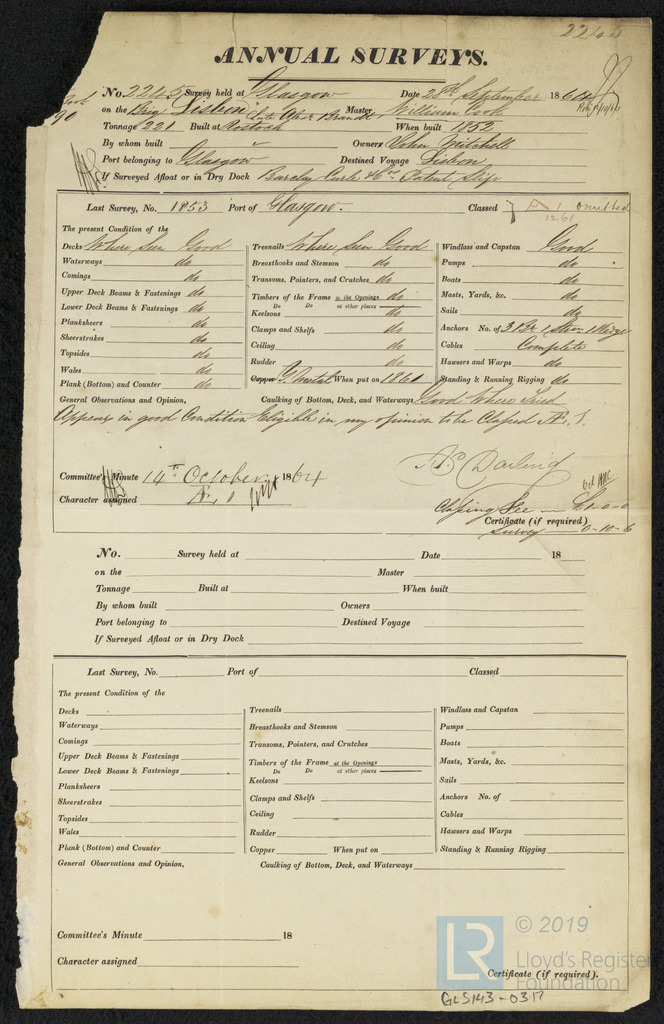 2245
ANNUAL SURVEYS.
No. 2245 Survey held at Glasgow Date 28th September 1864
on the Brig Lisbon late Brandt Master William Cook
Tonnage 221 Built at Rostock When built 1852
By whom built Owners John Mitchell
Port belonging to Glasgow Destined Voyage Lisbon
If Surveyed Afloat or in Dry Dock Barclay Curle & Co Patent Slip
Last Survey, No. 1853 Port of Glasgow. Classed A 1 Omitted
12.61
The present Condition of the
Decks Where Seen Good
Waterways do
Comings do
Upper Deck Beams & Fastenings do
Lower Deck Beams & Fastenings do
Planksheers do
Sheerstrakes do
Topsides do
Wales do
Plank (Bottom) and Counter do
Treenails Where Seen Good
Breasthooks and Stemson do
Transoms, Pointers, and Crutches do
Timbers of the Frame at the Openings do
Do Do at other places do
Keelsons do
Clamps and Shelfs do
Ceiling do
Rudder do
Copper Y. Metal When put on 1860
Windlass and Capstan Good
Pumps do
Boats do
Masts, Yards, &c. do
Sails do
Anchors No. of 3 Br 1 Strm 1 Kedge
Cables Complete
Hawsers and Warps do
Standing & Running Rigging do
General Observations and Opinion, Caulking of Bottom, Deck, and Waterways Good Where Tried
Appears in good Condition Eligible in my opinion to be Classed Æ. 1
Committee's Minute 14th October 1864
Character assigned Æ 1
Classing Fee — £1-0-0
Certificate (if required)
Survey — 0-10-6
No. Survey held at Date 18
on the Master
Tonnage Built at When built
By whom built Owners
Port belonging to Destined Voyage
If Surveyed Afloat or in Dry Dock
Last Survey, No. Port of Classed
The present Condition of the
Decks
Waterways
Comings
Upper Deck Beams & Fastenings
Lower Deck Beams & Fastenings
Planksheers
Sheerstrakes
Topsides
Wales
Plank (Bottom) and Counter
Treenails
Breasthooks and Stemson
Transoms, Pointers, and Crutches
Timbers of the Frame at the Openings
Do Do at other places
Keelsons
Clamps and Shelfs
Ceiling
Rudder
Copper When put on
Windlass and Capstan
Pumps
Boats
Masts, Yards, &c.
Sails
Anchors No. of
Cables
Hawsers and Warps
Standing & Running Rigging
General Observations and Opinion, Caulking of Bottom, Deck, and Waterways
Committee's Minute 18
Character assigned
Certificate (if required).
LR
© 2019
Lloyd's Register
Foundation
GLS143-0317